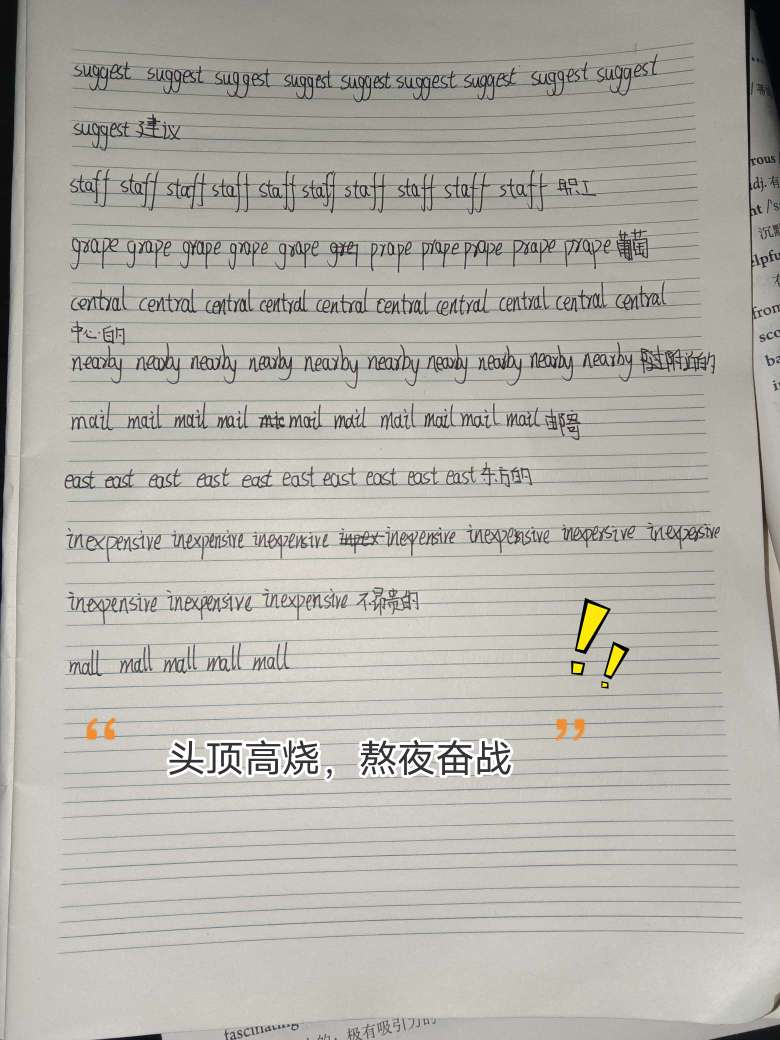 suggest suggest suggest suggest suggest suggest suggest suggest suggest
suggest 建议
staff staff staff staff staff staff staff staff staff staff 职工
grape grape grape grape grape prape prape prape prape prape 葡萄
central central central central central central central central central central
中心的
nearby nearby nearby nearby nearby nearby nearby nearby nearby nearby 附近的
mail mail mail mail mail mail mail mail mail mail 邮寄
east east east east east east east east east east 东方的
inexpensive inexpensive inexpensive inexpensive inexpensive inexpersive inexpersive
inexpensive inexpensive inexpensive 不昂贵的
mall mall mall mall mall
“ 头顶高烧，熬夜奋战 ”
rous
adj. 有
nt /'s
沉默
elpfu
有
from
sco
ba
fascinating
极有吸引力的